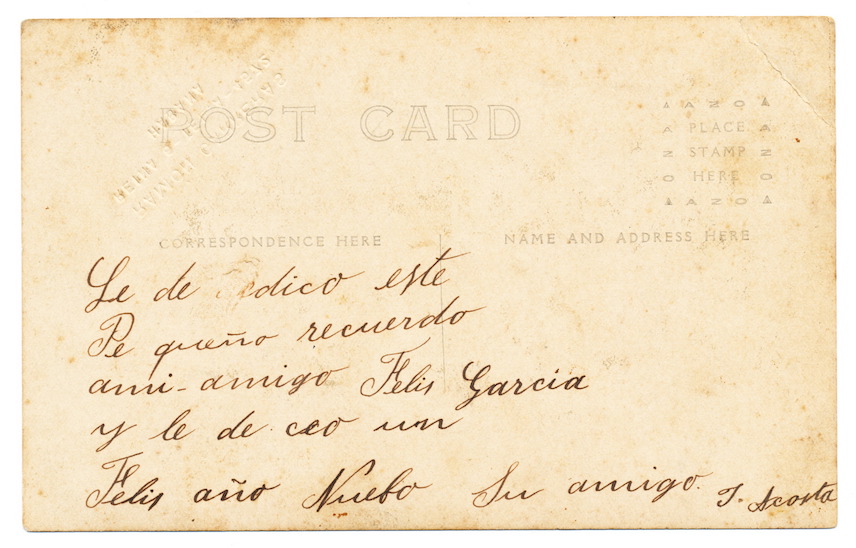 POST CARD
AZO
PLACE
STAMP
HERE
AZO
CORRESPONDENCE HERE
NAME AND ADDRESS HERE
Le de dico este
Pe queño recuerdo
ami-amigo Felis Garcia
y le de ceo un
Felis año Nuebo Su amigo. J. Acosta